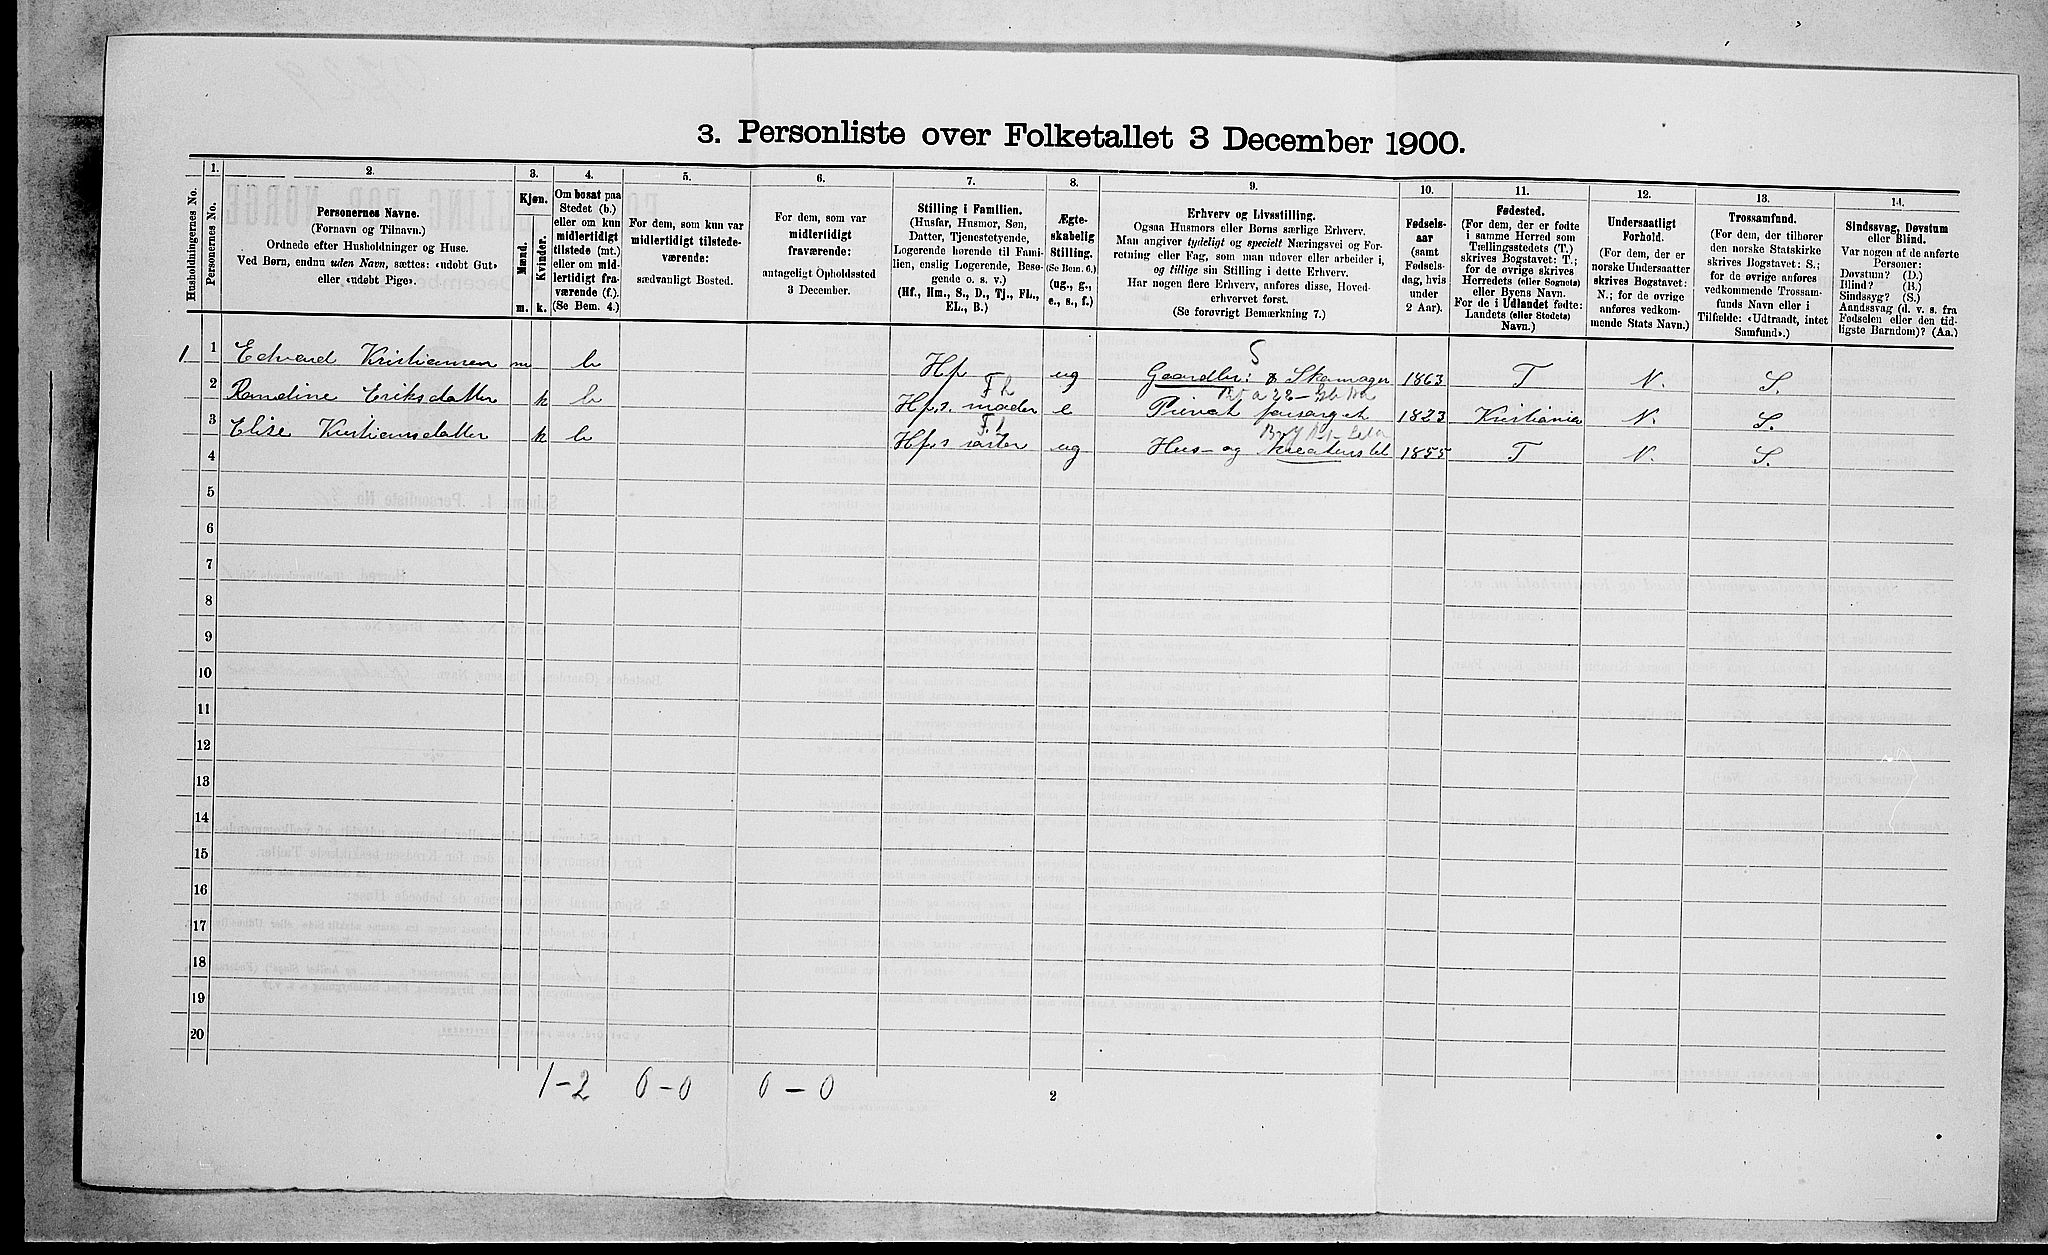 3. Personliste over Folketallet 3 December 1900.
Husholdningernes No.
1.
Personernes No.
2.
Personernes Navne.
(Fornavn og Tilnavn.)
Ordnede efter Husholdninger og Huse.
Ved Børn, endnu uden Navn, sættes: «udøbt Gut»
eller «udøbt Pige».
3.
Kjøn.
Mænd.
Kvinder.
m.
k.
4.
Om bosat paa
Stedet (b.)
eller om kun
midlertidigt
tilstede (mt.)
eller om mid-
lertidigt fra-
værende (f.).
(Se Bem. 4.)
5.
For dem, som kun var
midlertidigt tilstede-
værende:
sædvanligt Bosted.
6.
For dem, som var
midlertidigt
fraværende:
antageligt Opholdssted
3 December.
7.
Stilling i Familien.
(Husfar, Husmor, Søn,
Datter, Tjenestetyende,
Logerende hørende til Fami-
lien, enslig Logerende, Besø-
gende o. s. v.)
(Hf., Hm., S., D., Tj., FL.,
EL., B.)
8.
Ægte-
skabelig
Stilling.
(Se Bem. 6.)
(ug., g.,
e., s., f.)
9.
Erhverv og Livsstilling.
Ogsaa Husmors eller Børns særlige Erhverv.
Man angiver tydeligt og specielt Næringsvei og For-
retning eller Fag, som man udøver eller arbeider i,
og tillige sin Stilling i dette Erhverv.
Har nogen flere Erhverv, anføres disse, Hoved-
erhvervet først.
(Se forøvrigt Bemærkning 7.)
10.
Fødsels-
aar
(samt
Fødsels-
dag, hvis
under
2 Aar).
11.
Fødested.
(For dem, der er fødte
i samme Herred som
Tællingsstedets (T.)
skrives Bogstavet: T.;
for de øvrige skrives
Herredets (eller Sognets)
eller Byens Navn.
For de i Udlandet fødte:
Landets (eller Stedets)
Navn.)
12.
Undersaatligt
Forhold.
(For dem, der er
norske Undersaatter
skrives Bogstavet:
N.; for de øvrige
anføres vedkom-
mende Stats Navn.)
13.
Trossamfund.
(For dem, der tilhører
den norske Statskirke
skrives Bogstavet: S.;
for de øvrige anføres
vedkommende Trossam-
funds Navn eller i
Tilfælde: «Udtraadt, intet
Samfund».)
14.
Sindssvag, Døvstum
eller Blind.
Var nogen af de anførte
Personer:
Døvstum? (D.)
Blind? (B.)
Sindssyg? (S.)
Aandssvag (d. v. s. fra
Fødselen eller den tid-
ligste Barndom)? (Aa.)
1 1 Edvard Kristiansen m b Hf ug Gaardbr: & Skomager 1863 T N. S.
2 Randine Eriksdatter k b Hf.s moder e Privat forsørget 1823 Kristiania N. S.
3 Elise Kristiansdatter k b Hf.s søster ug Hus- og Kreaturstel 1855 T N. S.
4
5
6
7
8
9
10
11
12
13
14
15
16
17
18
19
20
1-2 0-0 0-0
2